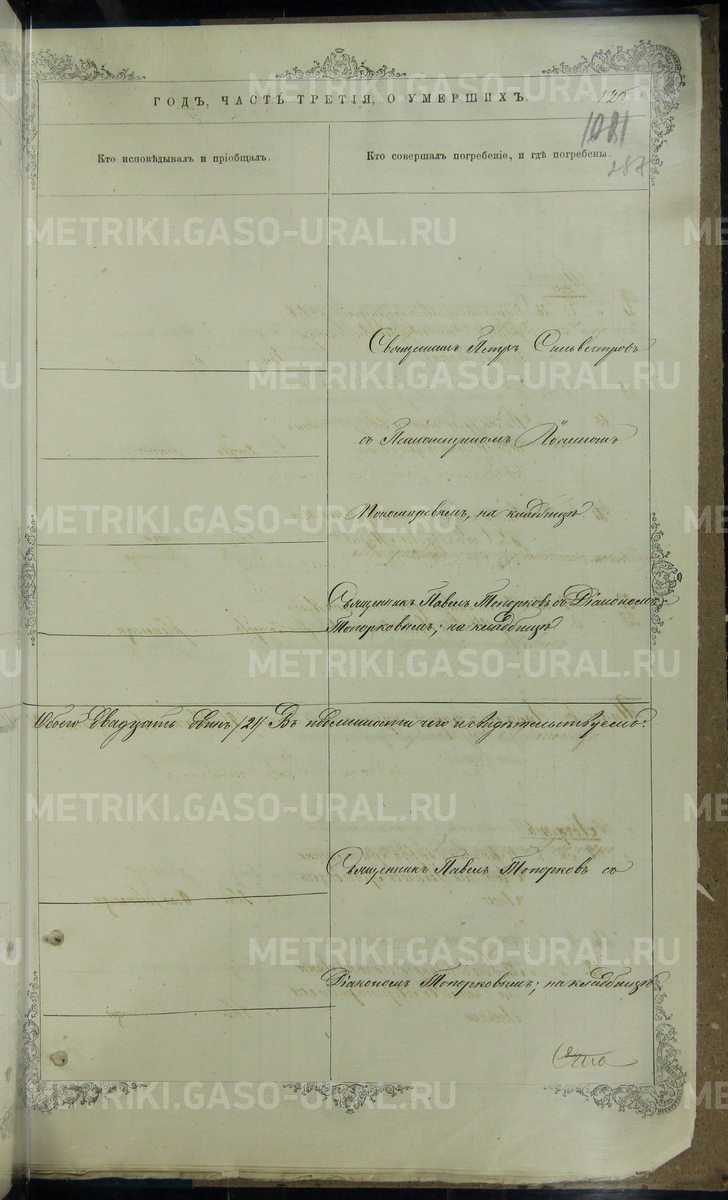 ГОДЪ, ЧАСТЬ ТРЕТІЯ, О УМЕРШИХЪ.
120
1081
287
Кто исповѣдывалъ и пріобщалъ.
Кто совершалъ погребеніе, и гдѣ погребены.
METRIKI.GASO-URAL.RU
Священникъ Петръ Сильвестровъ
съ Псаломщикомъ
Пономаревымъ, на кладбищѣ.
Священникъ Павелъ Топорковъ съ Діакономъ
Топорковымъ; на кладбищѣ
Обоего двадцать одинъ /21/ Въ чего и свидѣтельствуемъ:
Священникъ Павелъ Топорковъ съ
Діакономъ Топорковымъ; на кладбищѣ